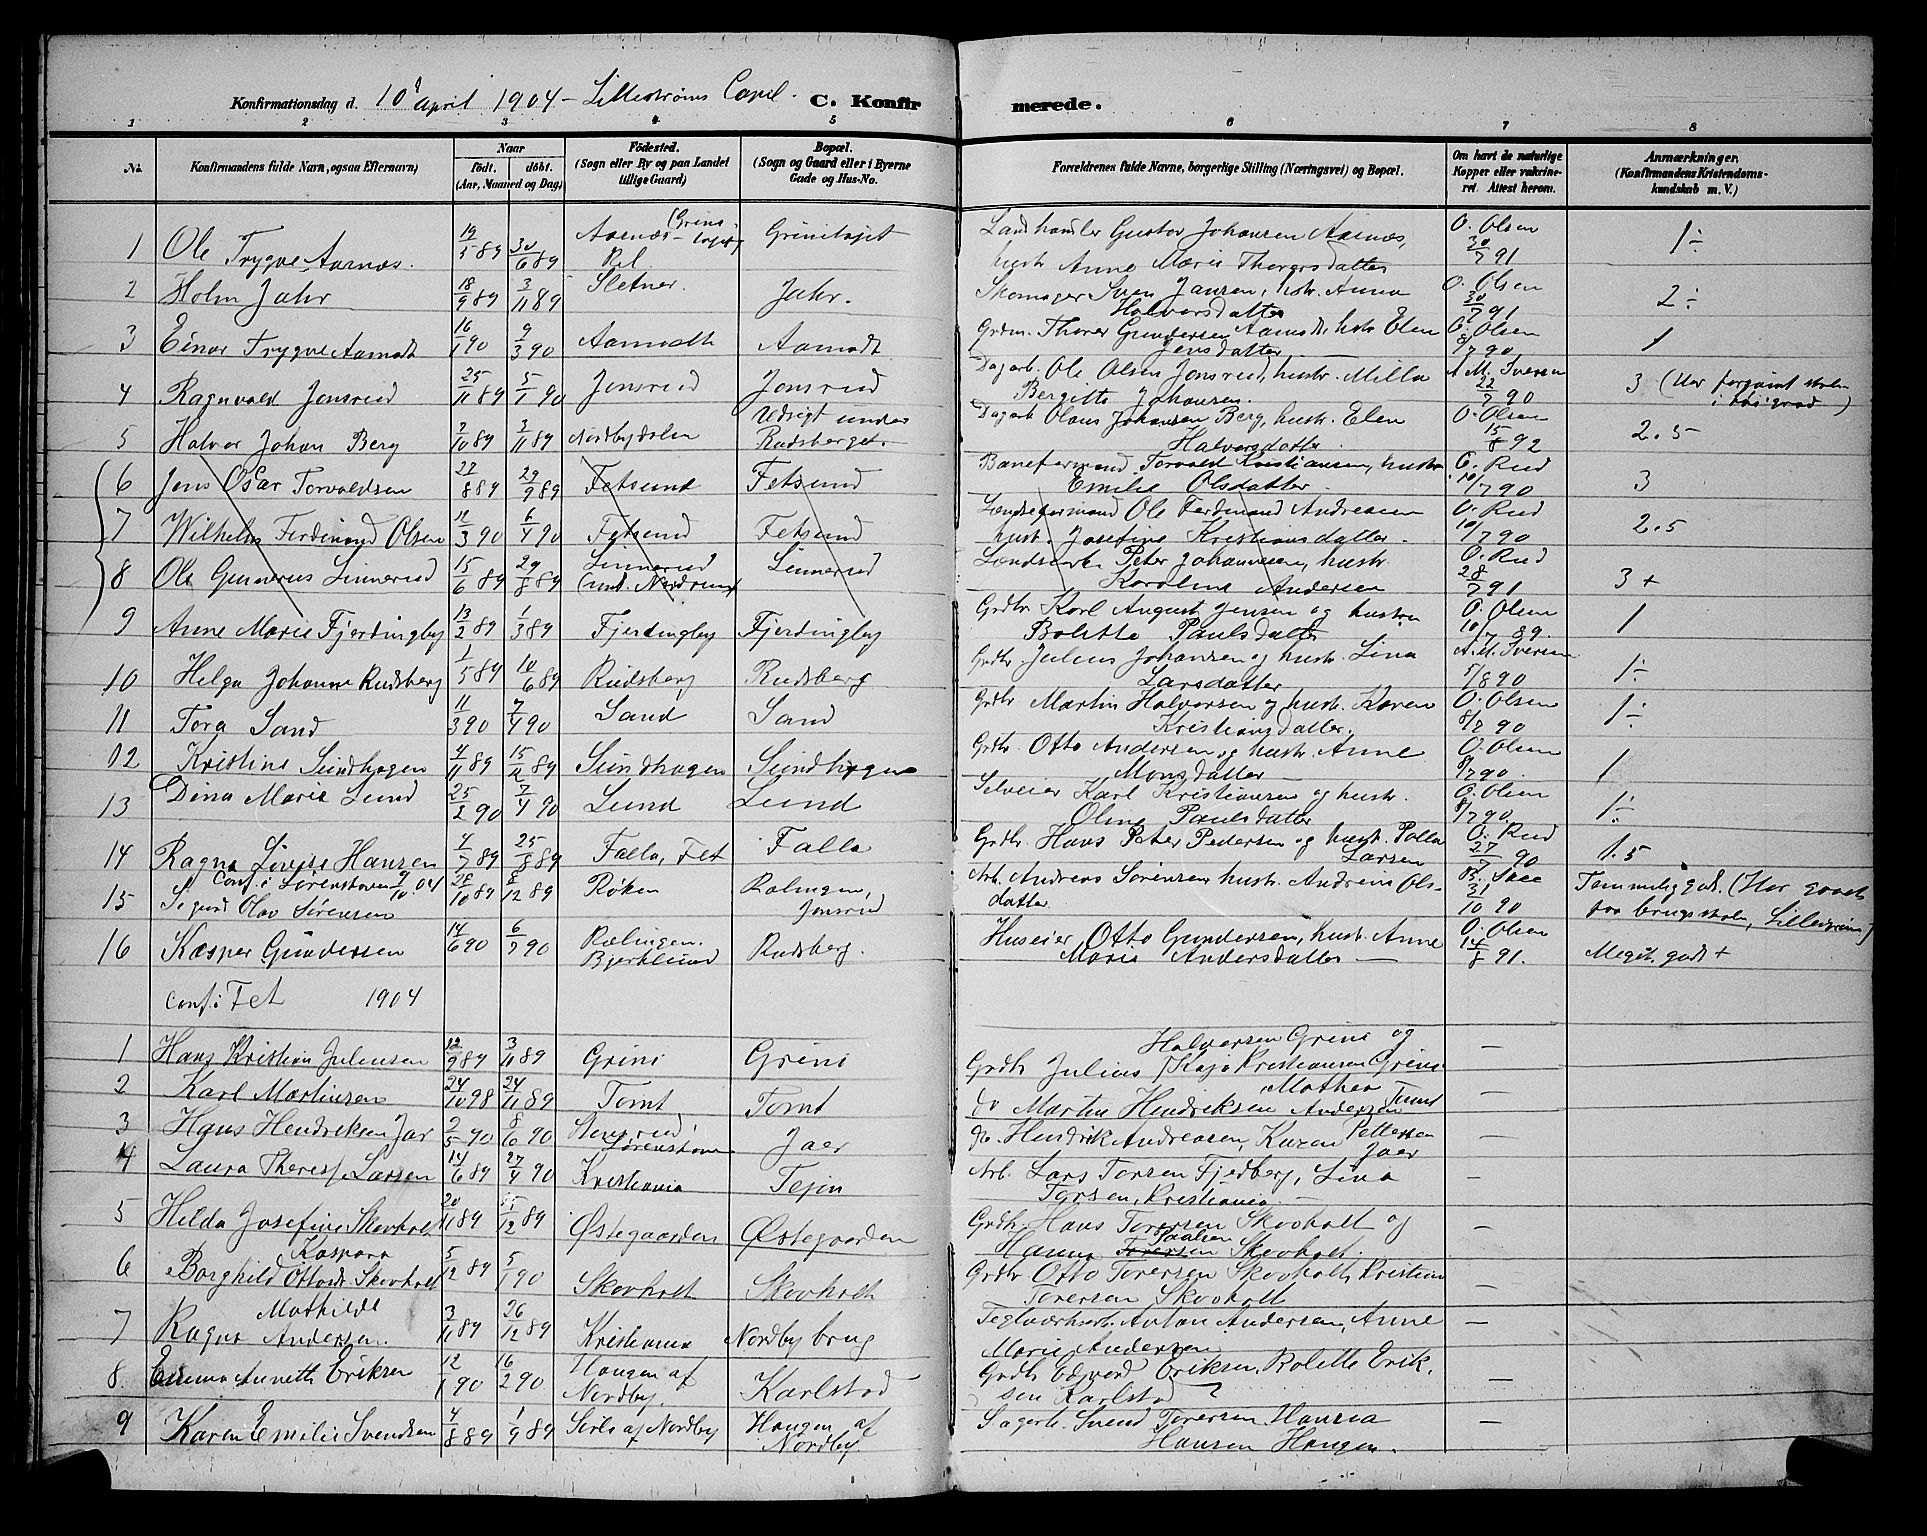 Konfirmationsdag d. 10 april 1904 - Lillestrøms Capel. C. Konfirmerede.
1 2 3 4 5 6 7 8
No. Konfirmandens fulde Navn, ogsaa Efternavn) Naar født. døbt. (Aar, Maaned og Dag) Fødested. (Sogn eller By og paa Landet tillige Gaard) Bopæl. (Sogn og Gaard eller i Byerne Gade og Hus-No. Forældrenes fulde Navne, borgerlige Stilling (Næringsvei) og Bopæl. Om havt de naturlige Kopper eller vakcineret. Attest herom. Anmærkninger. (Konfirmandens Kristendomskundskab m. V.)
1 Ole Trygve Aarnæs. 19/5 89 30/6 89 Aarnæs - Ræl. Landhandler Gustav Johansen Aarnæs, hustr Anne Marie Thorersdatter O. Olsen 30/7 91 1÷
2 Holm Jahr 18/9 89 3/11 89 Sletner. Jahr. Skomager Sven Jansen, hstr. Anna Halvorsdatter O. Olsen 30/7 91 2÷
3 Einar Trygve Aamodt 16/1 90 9/3 90 Aamodt Aamodt Grdm. Thorer Gundersen Aamodt, hustr Elen Jensdatter O. Olsen 8/7 90 1
4 Ragnvald Jonsrud 25/11 89 5/1 90 Jonsrud Jonsrud Dagarb. Ole Olsen Jonsrud, hustr. Milla Bergitte Johansen. A M. Iversen 22/7 90 3 (Har forsømt skolen i høi grad)
5 Halvor Johan Berg 2/10 89 3/11 89 Nordbydalen Udsigt under Rudsberget. Dagarb Olaus Johansen Berg, hustr. Elen Halvorsdatter O. Olsen 15/8 92 2.5
6 Jens Oscar Torvaldsen 22/8 89 29/9 89 Fetsund Fetsund Baneformand Torvald Kristiansen, hustr Emilie Olsdatter. O. Rud 10/7 90 3
7 Wilhelm Ferdinand Olsen 12/3 90 6/4 90 Fetsund Fetsund Lændseformand Ole Ferdinand Andreasen hust. Josefine Kristiansdatter. O. Rud 10/7 90 2.5
8 Ole Gunnerius Linnerud 15/6 89 29/8 89 Linnerud (und. Nordrum) Linnerud Lændsearb Peter Johannesen, hustr. Karoline Andersen O. Rud 28/7 91 3+
9 Anne Marie Fjerdingby 13/2 89 1/3 89 Fjerdingby Fjerdingby Grdbr Karl August Jensen og hustru Bolette Paulsdatter O. Olsen 10/7 89. 1
10 Helga Johanne Rudsberg 1/5 89 10/6 89 Rudsberg Rudsberg Grdbr. Julius Johansen og hustr. Lina Larsdatter A. M. Iversen 5/8 90 1÷
11 Tora Sand 11/3 90 7/4 90 Sand Sand Grdbr Martin Halvorsen og hustr. Karen Kristiansdatter. O. Olsen 8/7 90 1÷
12 Kristine Sundhagen 4/11 89 15/12 89 Sundhagen Sundhagen Grdbr. Otto Andersen og hustr. Anne Monsdatter O. Olsen 8/7 90. 1
13 Dina Marie Lund 25/2 90 7/4 90 Lund Lund Selveier Karl Kristiansen og hustr. Oline Paulsdatter O. Olsen 8/7 90. 1÷
14 Ragna Lovise Hansen 4/7 89 25/8 89 Falla, Fet Falla Grdbr. Hans Peter Pedersen og hustr. Larsen O. Rud 27/7 90 1.5
Conf. i Sørenstuen 9/10. 04
15 Sigurd Olav Sørensen 28/10 89 8/12 89 Røken Rælingen, Jonsrud Arb. Andreas Sørensen hustr. Andrine Olsdatter 31/10 90 Temmelig godt. (Har gaaet paa brugsskolen, Lillestrøm)
16 Kasper Gundersen 14/6 90 6/7 90 Rælingen. Bjerklund Rudsberg. Huseier Otto Gundersen, hust. Anne Marie Andersdatter O. Olsen 14/8 91. Meget godt +
Conf. i Fet 1904
1 Hans Kristian Juliussen 12/9 89 3/11 89 Grini Grini Grdbr Julius Halvorsen Grini og Kaja Kristiansen Grini —
2 Karl Martinsen 24/10 98 24/11 89 Tomt Tomt do Martin Hendriksen Mathea Andersen Tomt —
3 Hans Hendriksen Jar 2/5 90 8/6 90 Sørenstuen Jaer Do. Hendrik Andreasen, Karen Pettersen Jaer —
4 Laura Therese Larsen 14/6 89 27/4 90 Kristiania Tejin Arb. Lars Torsen Fjedberg, Lina Torsen, Kristiania. —
5 Hilda Josefine Skovholt 20/11 89 15/12 89 Østegaarden Østegaarden Grdbr. Hans Torersen Skovholt og Hanna Paulsen Skovholt. —
6 Borghild Kaspara Ottosdt. Skovholt 5/12 89 5/1 90 Skovholt Skovholt Grdbr Otto Torersen Skovholt, Kristian Torersen Skovholt —
7 Ragna Mathilde Andersen. 3/11 89 26/12 89 Kristiania Nordby brug Teglværksarb. Anton Andersen, Anne Marie Andersen —
8. Emma Annette Eriksen 12/1 90 16/2 90 Haugen af Nordby. Karlstad Grdbr Edvard Eriksen, Bolette Eriksen Karlstad ? —
9 Karen Emilie Svendsen 4/8 89 1/9 89 af Nordby Haugen af Nordby Sagarb. Svend Torersen Hansia Hansen Haugen. —